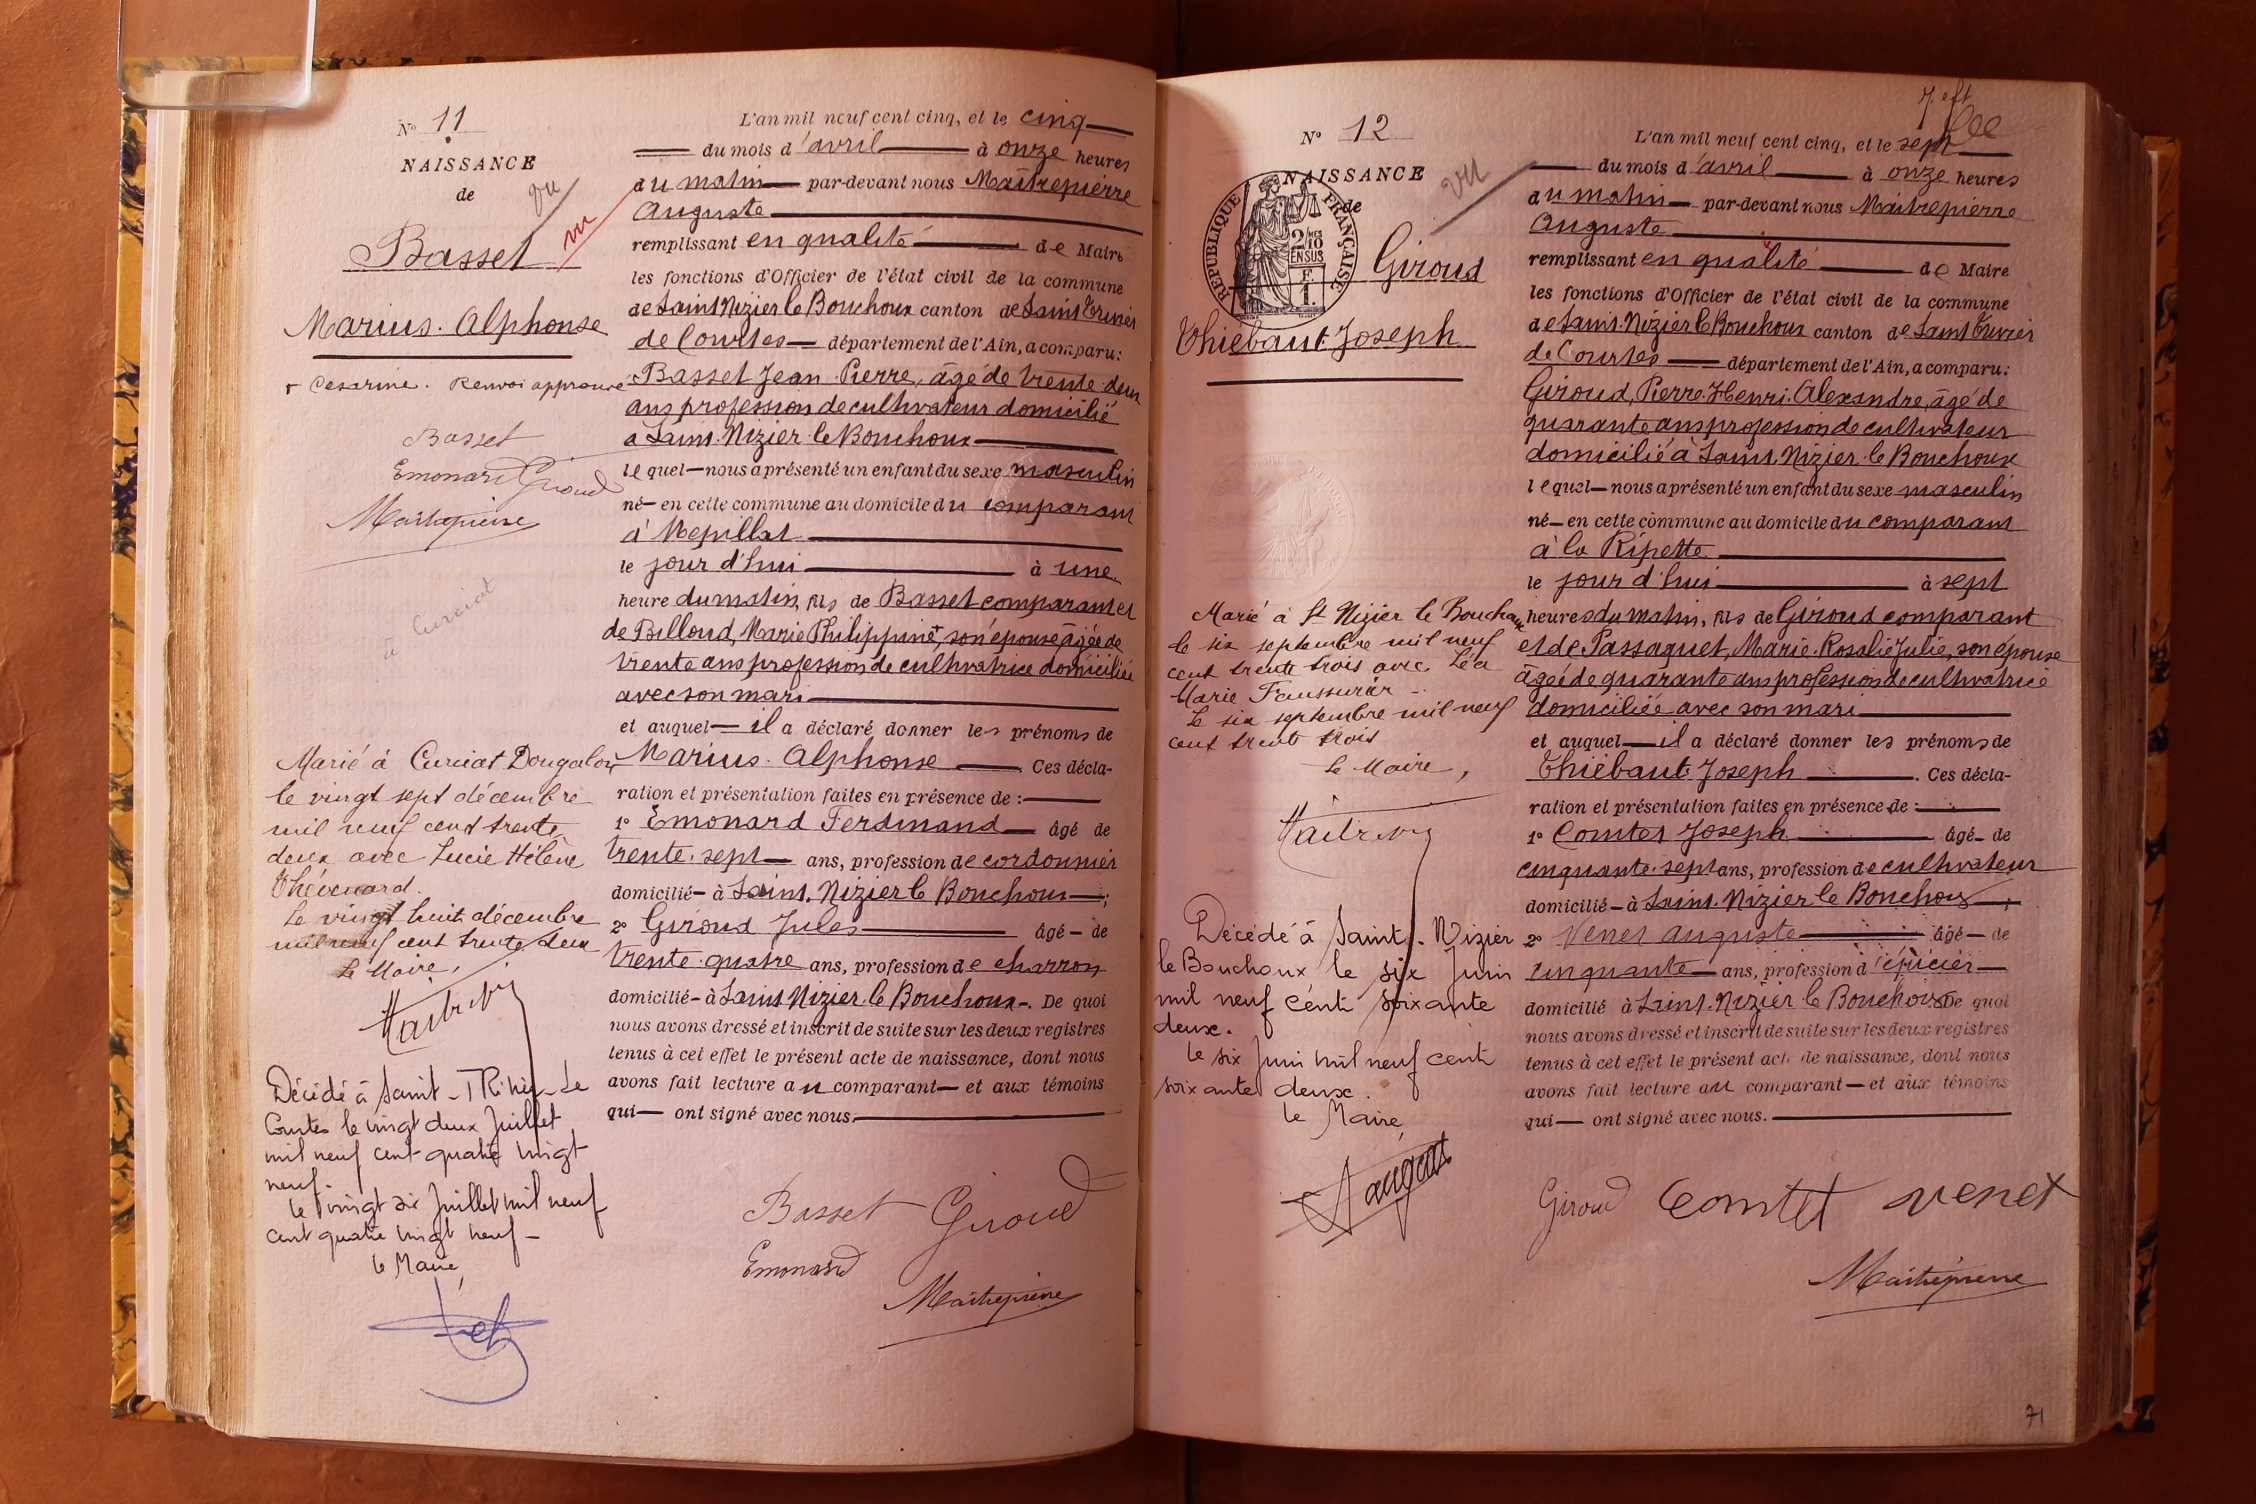 N° 11
NAISSANCE
de
vu
vu
Basset
Marius. Alphonse
+ Césarine. Renvoi approuvé
Basset
Emonard Giroud
Maitrepierre
à Curciat
Marié à Curciat Dongalon
le vingt sept décembre
mil neuf cent trente
deux avec Lucie Hélène
Thévenard.
Le vingt huit décembre
mil neuf cent trente deux
Le Maire,
Décédé à Saint-Trivier-de
Courtes le vingt deux Juillet
mil neuf cent quatre vingt
neuf.
le vingt six Juillet mil neuf
cent quatre vingt neuf -
le Maire,
L'an mil neuf cent cinq, et le cinq
du mois d'avril à onze heures
du matin par-devant nous Maitrepierre
Auguste
remplissant en qualité de Maire
les fonctions d'Officier de l'état civil de la commune
de Saint Nizier le Bouchoux canton de Saint Trivier
de Courtes département de l'Ain, a comparu:
Basset Jean. Pierre, âgé de trente. deux
ans profession de cultivateur domicilié
à Saint. Nizier. le Bouchoux
lequel nous a présenté un enfant du sexe masculin
né en cette commune au domicile du comparant
à Mépillat
le jour d'hui à une
heure du matin, fils de Basset comparant et
de Billoud, Marie Philippine+, son épouse âgée de
trente ans profession de cultivatrice domiciliée
avec son mari
et auquel il a déclaré donner les prénoms de
Marius. Alphonse Ces décla-
ration et présentation faites en présence de :
1° Emonard Ferdinand âgé de
trente. sept ans, profession de cordonnier
domicilié à Saint. Nizier le Bouchoux ;
2° Giroud Jules âgé de
trente. quatre ans, profession de charron
domicilié à Saint Nizier. le Bouchoux. De quoi
nous avons dressé et inscrit de suite sur les deux registres
tenus à cet effet le présent acte de naissance, dont nous
avons fait lecture au comparant et aux témoins
qui ont signé avec nous.
Basset Giroud
Emonard
Maitrepierre
N° 12
NAISSANCE
de
vu
REPUBLIQUE FRANÇAISE
2/10 EN SUS
F. 1.
Giroud
Thiébaut. Joseph
Marié à St Nizier le Bouchoux
le six septembre mil neuf
cent trente trois avec Léa
Marie Faussurier
Le six septembre mil neuf
cent trente trois
Le Maire,
Décédé à Saint-Nizier
le Bouchoux le six Juin
mil neuf cent soixante
deux.
le six Juin mil neuf cent
soixante deux.
le Maire,
L'an mil neuf cent cinq, et le sept
du mois d'avril à onze heures
du matin par-devant nous Maitrepierre
Auguste
remplissant en qualité de Maire
les fonctions d'Officier de l'état civil de la commune
de Saint. Nizier le Bouchoux canton de Saint Trivier
de Courtes département de l'Ain, a comparu:
Giroud, Pierre. Henri. Alexandre, âgé de
quarante ans profession de cultivateur
domicilié à Saint. Nizier. le Bouchoux
lequel nous a présenté un enfant du sexe masculin
né en cette commune au domicile du comparant
à la Ripette
le jour d'hui à sept
heures du matin, fils de Giroud comparant
et de Passaquet, Marie. Rosalie Julie, son épouse
âgée de quarante ans profession de cultivatrice
domiciliée avec son mari
et auquel il a déclaré donner les prénoms de
Thiébaut. Joseph . Ces décla-
ration et présentation faites en présence de :
1° Comtet Joseph âgé de
cinquante. sept ans, profession de cultivateur
domicilié à Saint. Nizier le Bouchoux ;
2° Venet Auguste âgé de
cinquante ans, profession d'épicier
domicilié à Saint. Nizier. le Bouchoux De quoi
nous avons dressé et inscrit de suite sur les deux registres
tenus à cet effet le présent acte de naissance, dont nous
avons fait lecture au comparant et aux témoins
qui ont signé avec nous.
Giroud Comtet Venet
Maitrepierre
71